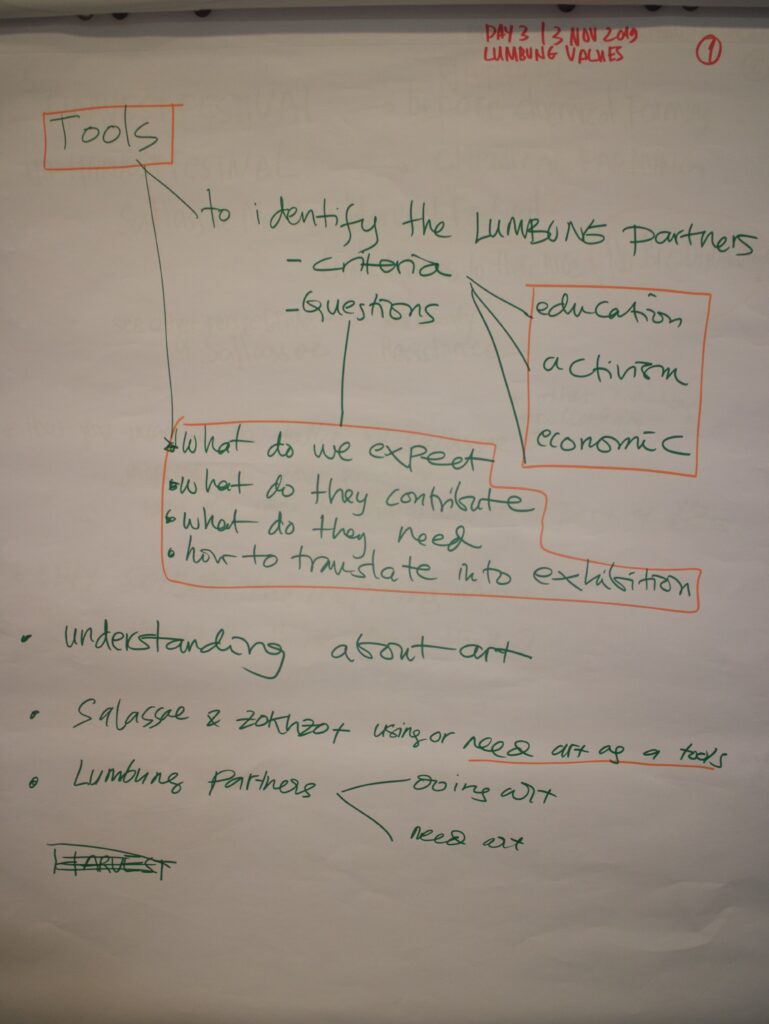 DAY 3 | 3 NOV 2019
LUMBUNG VALUES
1
Tools
to identify the LUMBUNG partners
- criteria
- Questions
education
activism
economic
what do we expect
• what do they contribute
• what do they need
• how to translate into exhibition
• understanding about art
• & using or need art as a tools
• Lumbung Partners
doing art
need art
HARVEST